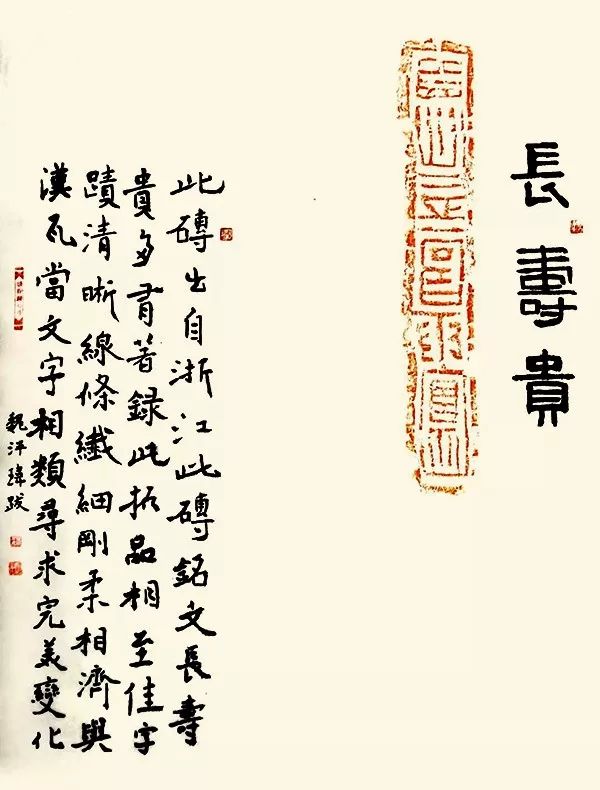 長壽貴
此磚出自浙江此磚銘文長壽
貴多有著錄此拓品相至佳字
蹟清晰線條纖細剛柔相濟與
漢瓦當文字相類尋求完美變化
跋